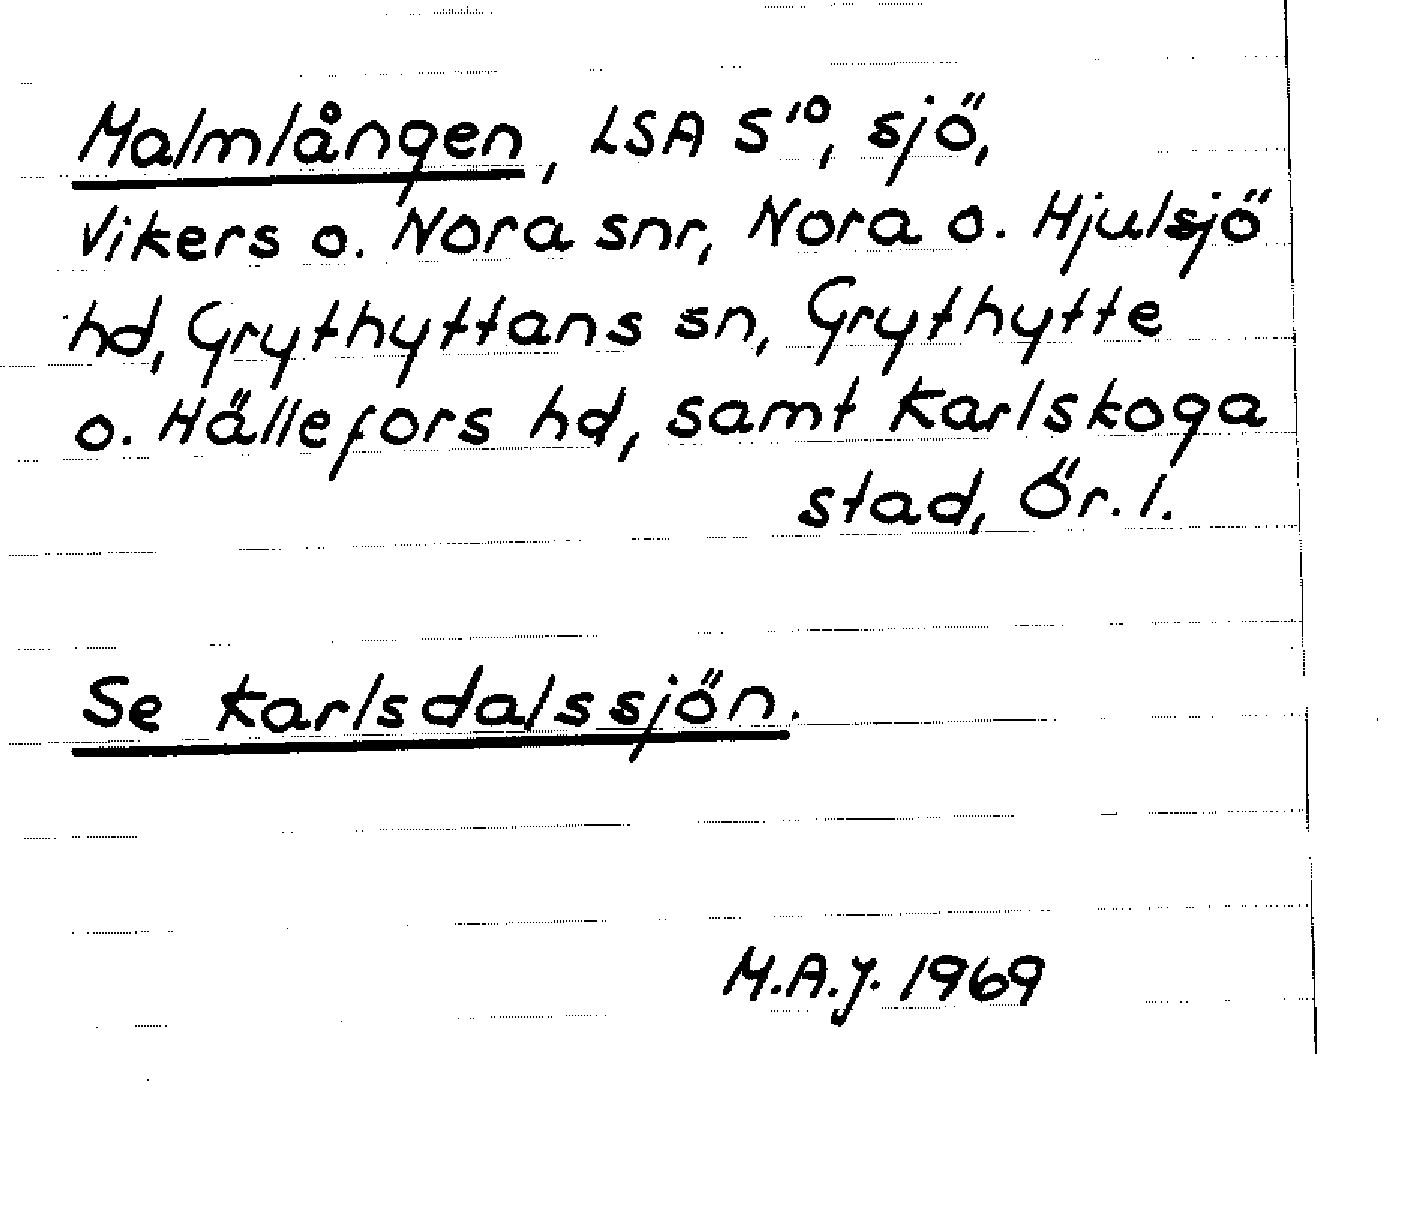 Malmlången, LSA S¹⁰, sjö,
Vikers o. Nora snr, Nora o. Hjulsjö
hd, Grythyttans sn, Grythytte
o. Hällefors hd, samt Karlskoga
stad, Ör. l.
Se Karlsdalssjön.
M.A.J. 1969